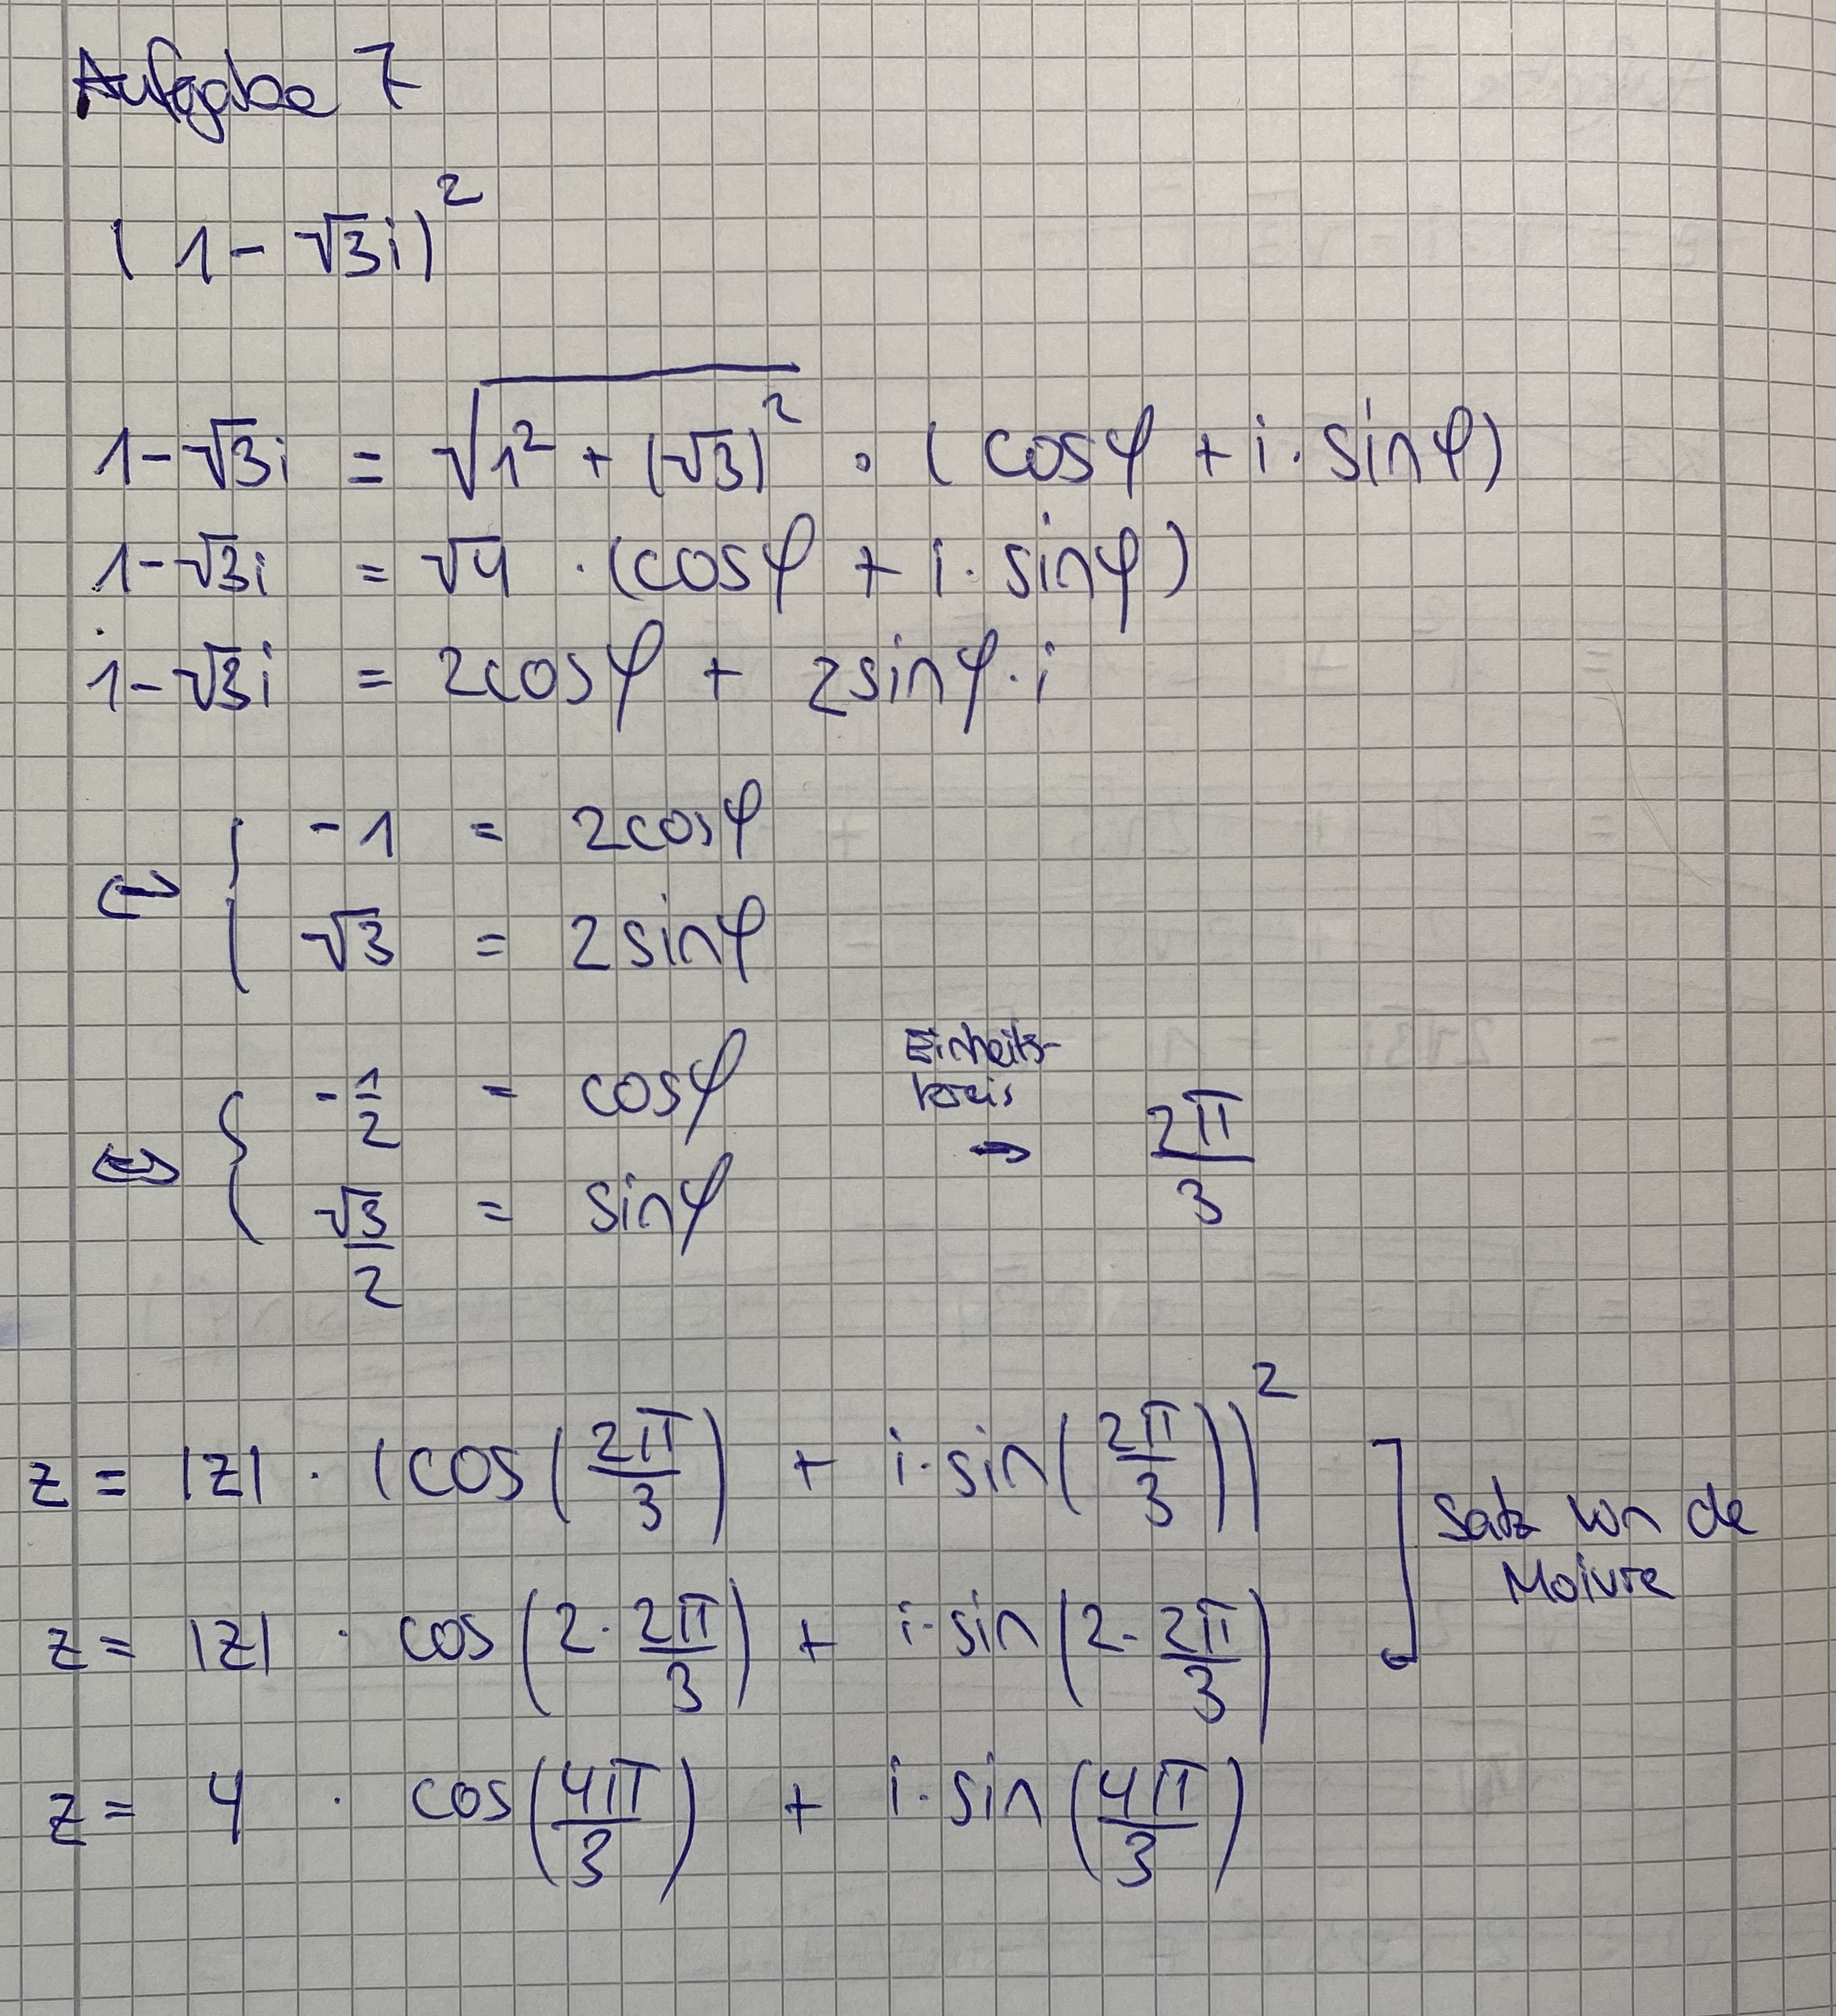 Aufgabe 7
(1-√3i)²
1-√3i = √(1² + (√3)²) · (cosφ + i · sinφ)
1-√3i = √4 · (cosφ + i · sinφ)
1-√3i = 2cosφ + 2sinφ · i
⇔ { -1 = 2cosφ
√3 = 2sinφ
⇔ { -1/2 = cosφ
√3/2 = sinφ
Einheits-
kreis
→ 2π/3
z = |z| · (cos(2π/3) + i·sin(2π/3))²
z = |z| · cos(2·2π/3) + i·sin(2·2π/3)
] Satz von de
Moivre
z = 4 · cos(4π/3) + i·sin(4π/3)